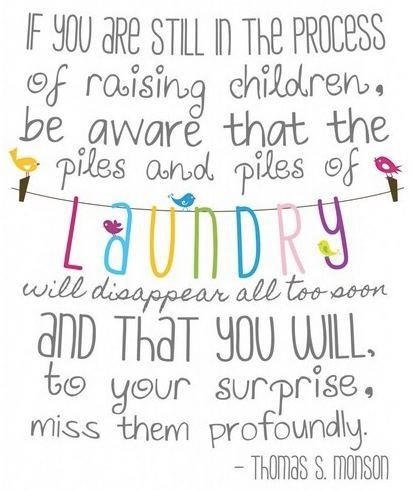 IF YOU ARE STILL IN THE PROCESS
of raising children,
be aware that the
piles and piles of
LAUNDRY
will disappear all too soon
AND THAT YOU WILL,
to your surprise,
miss them profoundly.
- THOMAS S. MONSON